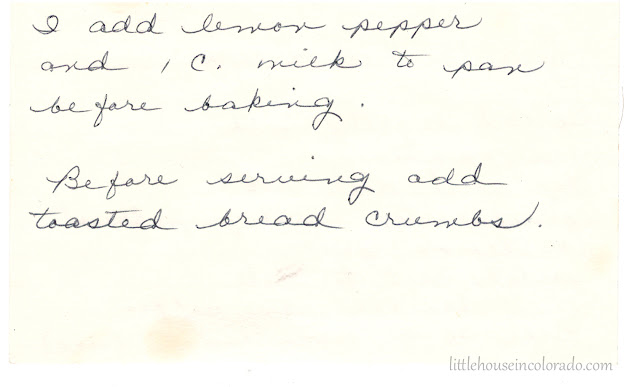 I add lemon pepper
and 1 C. milk to pan
before baking.
Before serving add
toasted bread crumbs.
littlehouseincolorado.com